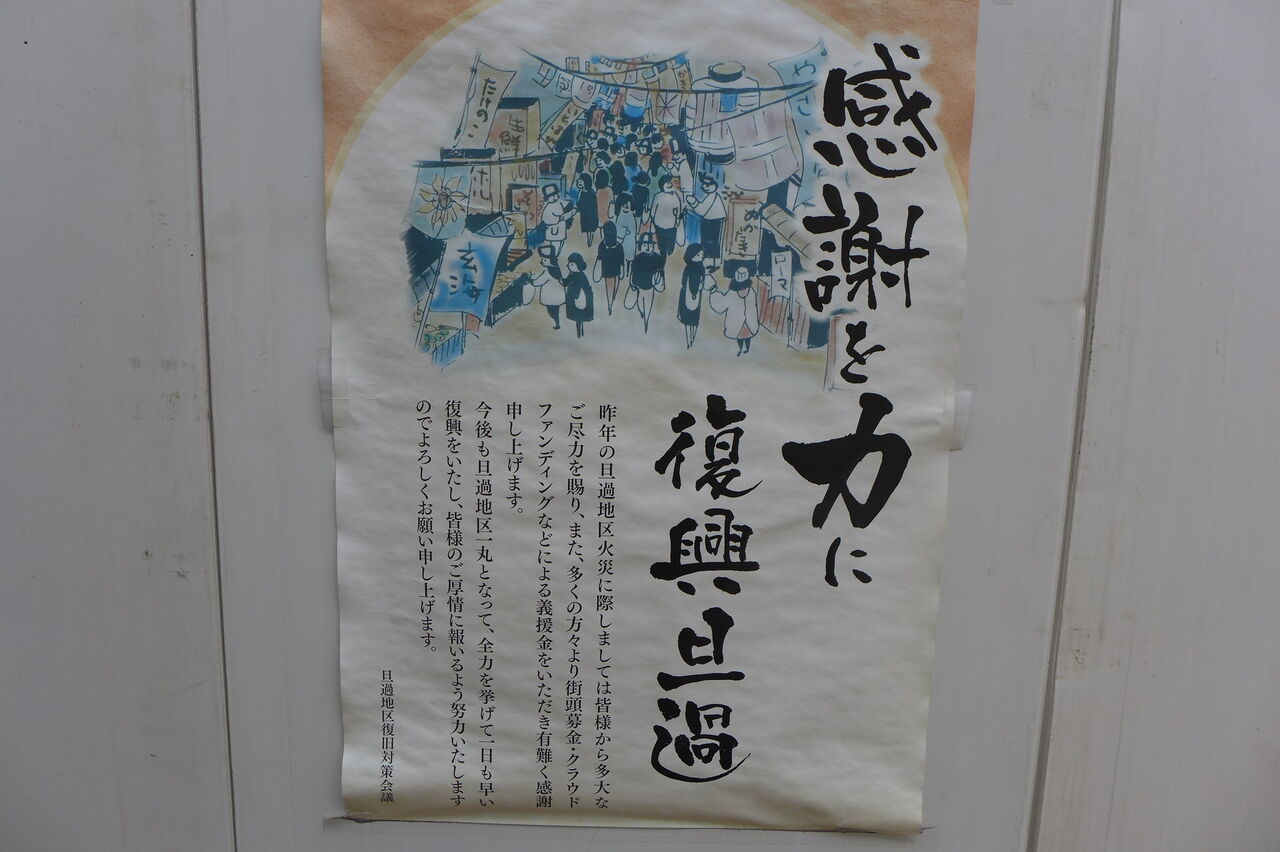 感謝を力に
復興旦過
昨年の旦過地区火災に際しましては皆様から多大な
ご尽力を賜り、また、多くの方々より街頭募金・クラウド
ファンディングなどによる義援金をいただき有難く感謝
申し上げます。
今後も旦過地区一丸となって、全力を挙げて一日も早い
復興をいたし、皆様のご厚情に報いるよう努力いたします
のでよろしくお願い申し上げます。
旦過地区復旧対策会議
たけのこ
生鮮
ホル
玄海
やさい
ぬか床